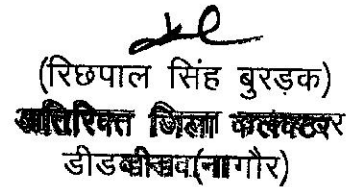 (रिछपाल सिंह बुरड़क)
अतिरिक्त जिला कलक्टर
डीडवाना(नागौर)